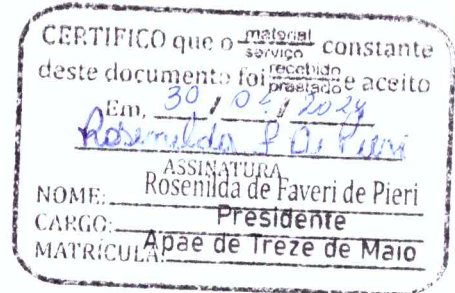 CERTIFICO que o material serviço constante
deste documento foi recebido prestado e aceito
Em, 30 / 04 / 2024
Rosenilda F Di Pieri
ASSINATURA
NOME: Rosenilda de Faveri de Pieri
CARGO: Presidente
MATRÍCULA: Apae de Treze de Maio